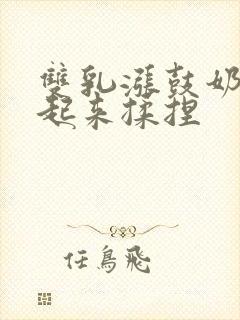 雙乳漲鼓奶
起来揉捏
任鳥飛